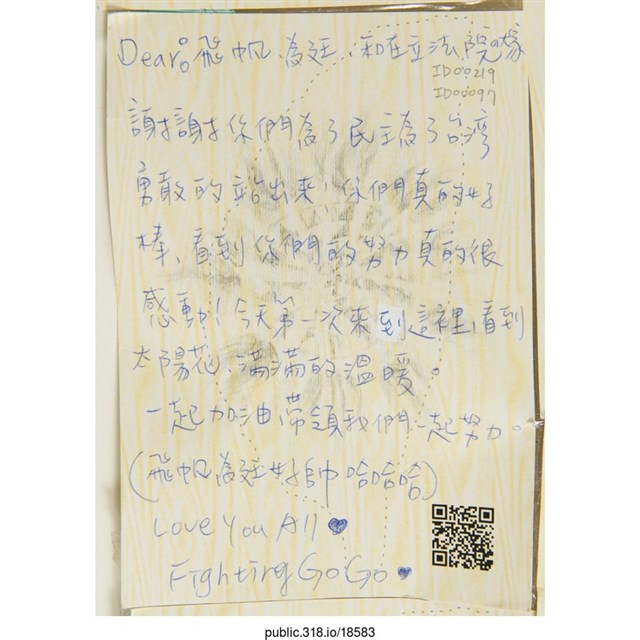 Dear: 飛帆、為廷、和在立法院的大家
ID00219
ID00097
謝謝你們為了民主為了台灣
勇敢的站出來，你們真的好
棒、看到你們的努力真的很
感動！今天第一次來到這裡、看到
太陽花、滿滿的溫暖。
一起加油帶領我們一起努力。
(飛帆為廷好帥哈哈哈)
Love You All
Fighting Go Go
public.318.io/18583